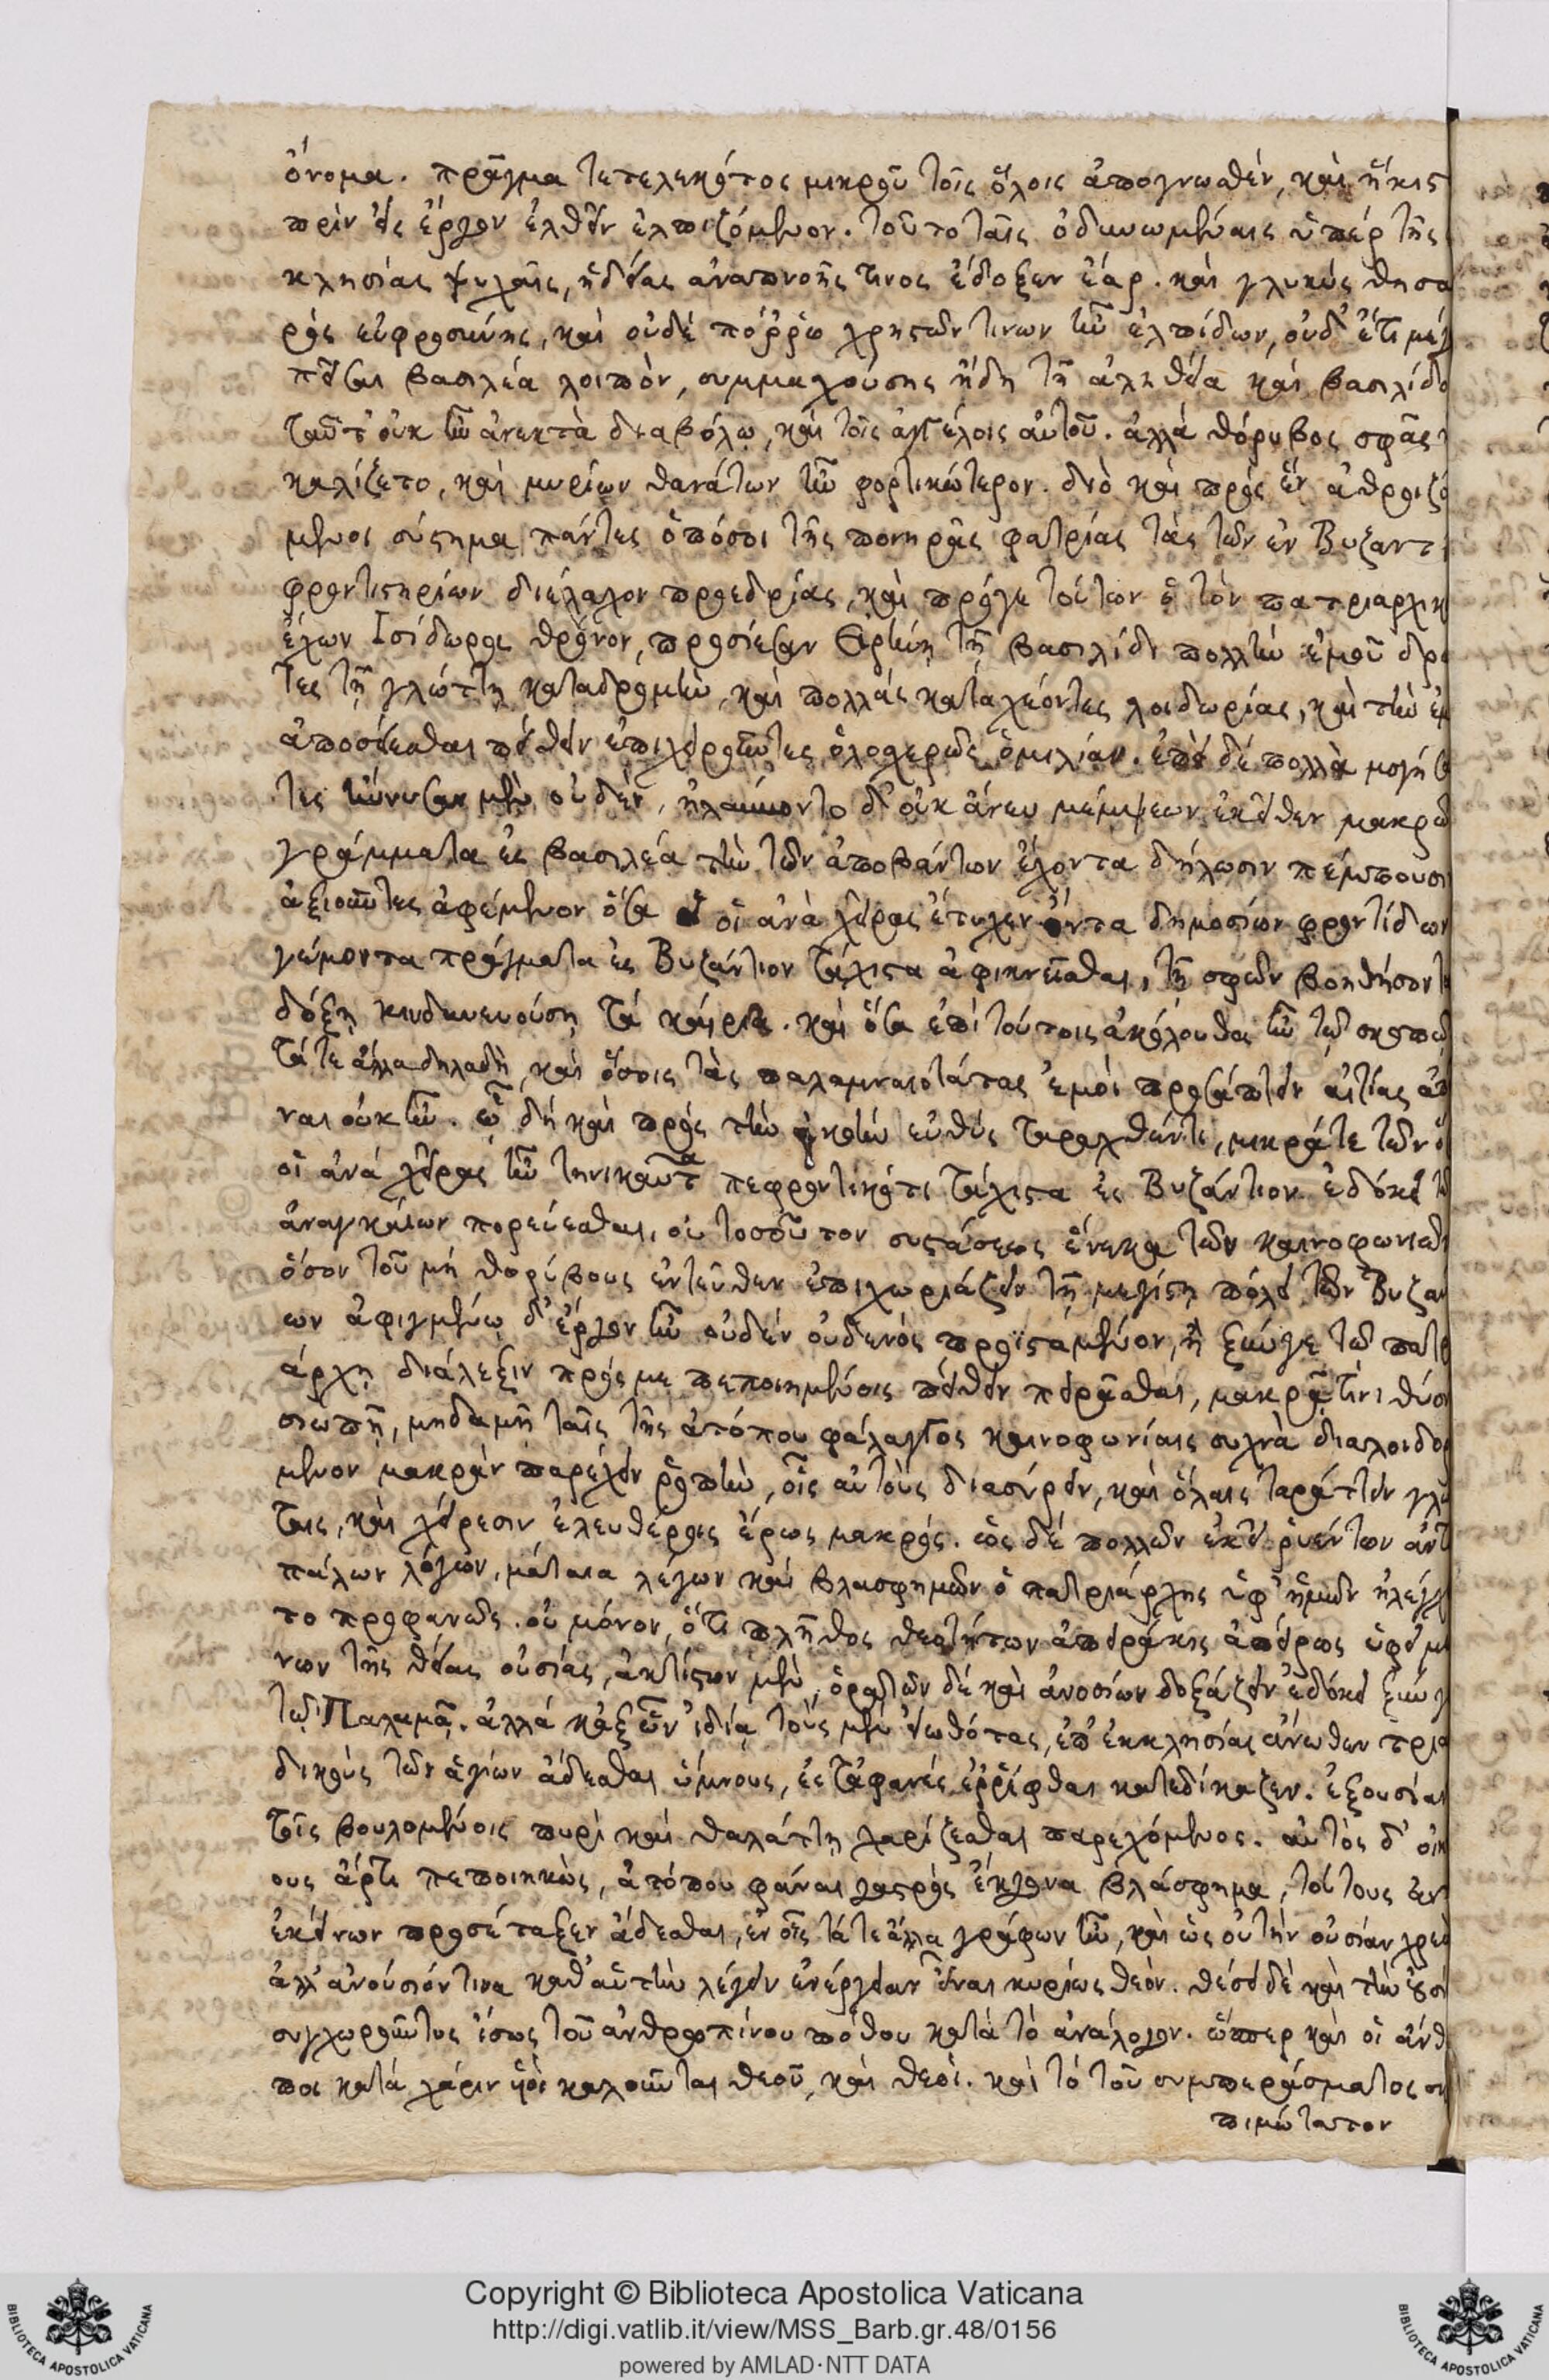 ὄνομα. πρᾶγμα τετελεκότος μικροῦ τοῖς ὅλοις ἀπογνωσθὲν, καὶ ἥκιστ
πρὶν εἰς ἔργον ἐλθεῖν ἐλπιζόμενον. τοῦτο ταῖς ὀδυνωμέναις ὑπέρ τῆς
κλησίας ψυχαῖς, ἡδείας ἀναπνοῆς τινος ἔδοξεν ἔαρ. καὶ γλυκὺς θησα
ρὸς εὐφροσύνης, καὶ οὐδὲ πόρρω χρηστῶν τινων ἦν ἐλπίδων, οὐδ' ἔτι μέγ
πεῖσαι βασιλέα λοιπὸν, συμμαχούσης ἤδη τῇ ἀληθεία καὶ βασιλίδο
ταῦτ' οὐκ ἦν ἀνεκτὰ διαβόλῳ, καὶ τοῖς ἀγγέλοις αὐτοῦ. ἀλλὰ θόρυβος σφᾶς
καλίζετο, καὶ μυρίων θανάτων ἦν φορτικώτερον. διὸ καὶ πρὸς ἓν ἀθροιζό
μενοι σύστημα πάντες ὁπόσοι τῆς πονηρᾶς φατρίας τὰς τῶν ἐν Βυζαντί
φροντιστηρίων διέλαχον προεδρίας, καὶ πρόγε τούτων ὁ τὸν πατριαρχικ
ἔχων Ἰσίδωρος θρόνον, προσίεσαν Εἰρήνῃ τῇ βασιλίδι πολλὴν ἐμοῦ δρα
τες τῇ γλώττῃ καταδρομὴν, καὶ πολλὰς καταχέοντες λοιδωρίας, καὶ τὴν ἐμ
ἀποσείεσθαι πείθειν ἐπιχειροῦντες ὁλοχερῶς ὁμιλίαν. ἐπεὶ δὲ πολλὰ μογήσα
τες ἤνυσαν μὲν οὐδὲν, ἠλαύνοντο δ' οὐκ ἄνευ μέμψεων ἐκεῖθεν μακρὰ
γράμματα ἐς βασιλέα τὴν τῶν ἀποβάντων ἔχοντα δήλωσιν πέμπουσι
ἀξιοῦντες ἀφέμενον ὅσα οἱ ἀνὰ χεῖρας ἔτυχεν ὄντα δημοσίων φροντίδων
γέμοντα πράγματα ἐς Βυζάντιον τάχιστα ἀφικνεῖσθαι, τῇ σφῶν βοηθήσοντα
δόξῃ κινδυνευούσῃ τὰ καίρια. καὶ ὅσα ἐπὶ τούτοις ἀκόλουθα ἦν τῷ σκοπῷ
τά τε ἄλλα δηλαδὴ, καὶ ὅσοις τὰς παλαμναιοτάτας ἐμοὶ προσάπτειν αἰτίας
ναι οὐκ ἦν. ᾧ δὴ καὶ πρὸς τὴν ἀκοὴν εὐθὺς ταραχθέντι, μικρά τε τῶν ὅ
οἱ ἀνὰ χεῖρας ἦν τηνικαῦτα πεφροντικότι τάχιστα ἐς Βυζάντιον ἐδόκει τῶ
ἀναγκαίων πορεύεσθαι, οὐ τοσοῦτον συστάσεως ἕνεκα τῶν καινοφωνιῶν
ὅσον τοῦ μὴ θορύβους ἐντεῦθεν ἐπιχωριάζειν τῇ μεγίστῃ πόλει τῶν Βυζαν
ων ἀφιγμένῳ δ' ἔργον ἦν οὐδὲν οὐδενὸς προϊστάμενον, ἢ ξύν γε τῷ πατρι
άρχῃ διάλεξιν πρός με πεποιημένοις πείθειν πειρᾶσθαι, μακρᾷ τινι θύσα
σιωπῇ, μηδαμῆ ταῖς τῆς ἀτόπου φάλαγγος καινοφωνίαις συχνὰ διαλοιδορ
μενον μακρὰν παρέχειν ῥοπὴν, οἷς αὐτοὺς διασύρειν, καὶ ὅλαις ταράττειν γλώ
ταις, καὶ χείρεσιν ἐλευθέροις ἔρως μακρός. ὡς δὲ πολλῶν ἐκεῖ ῥυέντων ἀντ
πάλων λόγων, μάταια λέγων καὶ βλασφημῶν ὁ πατριάρχης ὑφ' ἡμῶν ἠλέγχ
το προφανῶς. οὐ μόνον, ὅτι πλῆθος θεοτήτων ἀπειράκις ἀπείρως ὑφειμέ
νων τῆς θείας οὐσίας, ἀκτίστων μὲν, ὁρατῶν δὲ καὶ ἀνοσίων δοξάζειν ἐδόκει ξύν γ
τῷ Παλαμᾷ. ἀλλὰ κἀξ ὧν ἰδίᾳ τοὺς μὲν εἰωθότας, ἐπ' ἐκκλησίας ἄνωθεν τρια
δικοὺς τῶν ἁγίων ᾄδεσθαι ὕμνους, ἐς τἀφανὲς ἐρρίφθαι κατεδίκαζεν. ἐξουσίαν
τοῖς βουλομένοις πυρὶ καὶ θαλάττῃ χαρίζεσθαι παρεχόμενος. αὐτὸς δ' οἰκ
ους ἄρτι πεποιηκὼς, ἀτόπου φάναι γαστρὸς ἔκγονα βλάσφημα, τούτους ἀντ
ἐκείνων προσέταξεν ᾄδεσθαι, ἐν οἷς τά τε ἄλλα γράφων ἦν, καὶ ὡς οὐ τὴν οὐσίαν χρεὼ
ἀλλ' ἀνούσιόν τινα καθ' αὑτὴν λέγειν ἐνέργειαν εἶναι κυρίως θεόν. θέσει δὲ καὶ τὴν οὐσί
συγχωροῦντος ἴσως τοῦ ἀνθρωπίνου πόθου κατὰ τὸ ἀνάλογον. ὥσπερ καὶ οἱ ἄνθ
ποι κατὰ χάριν υἱοὶ καλοῦνται θεοῦ, καὶ θεοί. καὶ τὸ τοῦ συμπεράσματος
πιμώτατον
Copyright © Biblioteca Apostolica Vaticana
http://digi.vatlib.it/view/MSS_Barb.gr.48/0156
powered by AMLAD·NTT DATA
BIBLIOTECA APOSTOLICA VATICANA
BIBLIOTECA APOSTOLICA VATICANA